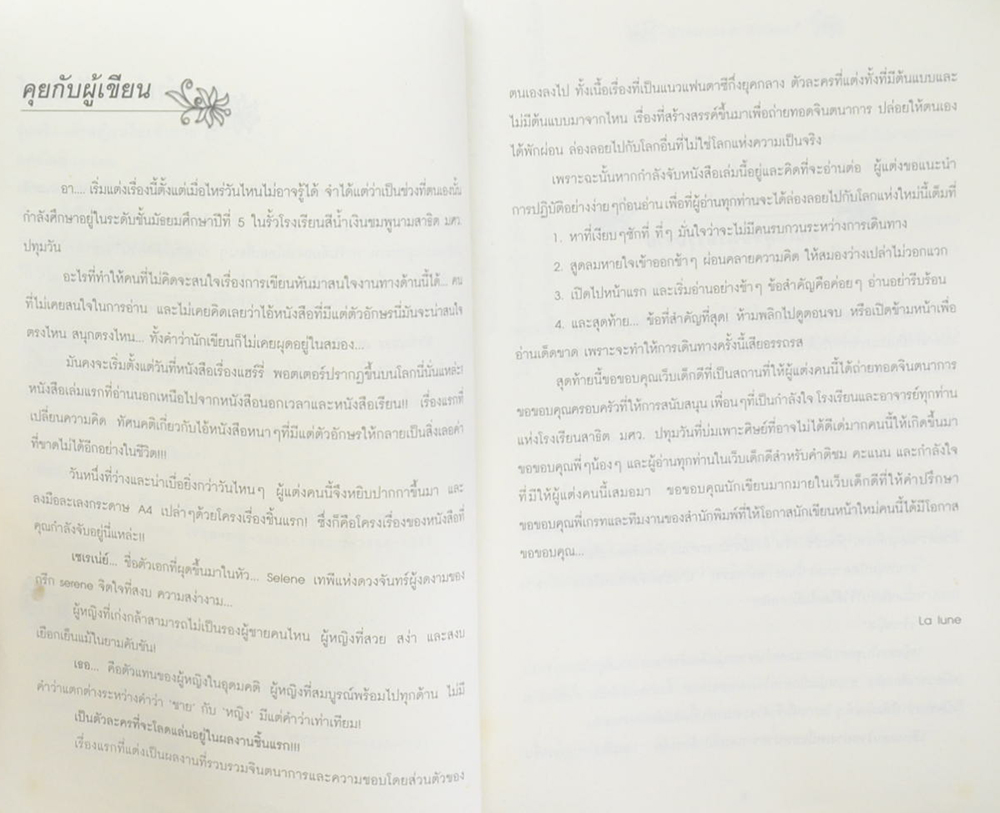 คุยกับผู้เขียน
อา.... เริ่มแต่งเรื่องนี้ตั้งแต่เมื่อไหร่วันไหนไม่อาจรู้ได้ จำได้แต่ว่าเป็นช่วงที่ตนเองนั้น
กำลังศึกษาอยู่ในระดับชั้นมัธยมศึกษาปีที่ 5 ในรั้วโรงเรียนสีน้ำเงินชมพูนามสาธิต มศว
ปทุมวัน
อะไรที่ทำให้คนที่ไม่คิดจะสนใจเรื่องการเขียนหันมาสนใจงานทางด้านนี้ได้... คน
ที่ไม่เคยสนใจในการอ่าน และไม่เคยคิดเลยว่าไอ้หนังสือที่มีแต่ตัวอักษรนี่มันจะน่าสนใจ
ตรงไหน สนุกตรงไหน... ทั้งคำว่านักเขียนก็ไม่เคยผุดอยู่ในสมอง...
มันคงจะเริ่มตั้งแต่วันที่หนังสือเรื่องแฮร์รี่ พอตเตอร์ปรากฏขึ้นบนโลกนี้นั่นแหล่ะ!
หนังสือเล่มแรกที่อ่านนอกเหนือไปจากหนังสือนอกเวลาและหนังสือเรียน!! เรื่องแรกที่
เปลี่ยนความคิด ทัศนคติเกี่ยวกับไอ้หนังสือหนาๆที่มีแต่ตัวอักษรให้กลายเป็นสิ่งเลอค่า
ที่ขาดไม่ได้อีกอย่างในชีวิต!!!
วันหนึ่งที่ว่างและน่าเบื่อยิ่งกว่าวันไหนๆ ผู้แต่งคนนี้จึงหยิบปากกาขึ้นมา และ
ลงมือละเลงกระดาษ A4 เปล่าๆด้วยโครงเรื่องชิ้นแรก! ซึ่งก็คือโครงเรื่องของหนังสือที่
คุณกำลังจับอยู่นี่แหล่ะ!!
เซเรเน่ย์... ชื่อตัวเอกที่ผุดขึ้นมาในหัว... Selene เทพีแห่งดวงจันทร์ผู้งดงามของ
กรีก serene จิตใจที่สงบ ความสง่างาม...
ผู้หญิงที่เก่งกล้าสามารถไม่เป็นรองผู้ชายคนไหน ผู้หญิงที่สวย สง่า และสงบ
เยือกเย็นแม้ในยามคับขัน!
เธอ... คือตัวแทนของผู้หญิงในอุดมคติ ผู้หญิงที่สมบูรณ์พร้อมไปทุกด้าน ไม่มี
คำว่าแตกต่างระหว่างคำว่า 'ชาย' กับ 'หญิง' มีแต่คำว่าเท่าเทียม!
เป็นตัวละครที่จะโลดแล่นอยู่ในผลงานชิ้นแรก!!!
เรื่องแรกที่แต่งเป็นผลงานที่รวบรวมจินตนาการและความชอบโดยส่วนตัวของ
ตนเองลงไป ทั้งเนื้อเรื่องที่เป็นแนวแฟนตาซีกึ่งยุคกลาง ตัวละครที่แต่งทั้งที่มีต้นแบบและ
ไม่มีต้นแบบมาจากไหน เรื่องที่สร้างสรรค์ขึ้นมาเพื่อถ่ายทอดจินตนาการ ปล่อยให้ตนเอง
ได้พักผ่อน ล่องลอยไปกับโลกอื่นที่ไม่ใช่โลกแห่งความเป็นจริง
เพราะฉะนั้นหากกำลังจับหนังสือเล่มนี้อยู่และคิดที่จะอ่านต่อ ผู้แต่งขอแนะนำ
การปฏิบัติอย่างง่ายๆก่อนอ่าน เพื่อที่ผู้อ่านทุกท่านจะได้ล่องลอยไปกับโลกแห่งใหม่นี้เต็มที่
1. หาที่เงียบๆซักที่ ที่ๆ มั่นใจว่าจะไม่มีคนรบกวนระหว่างการเดินทาง
2. สูดลมหายใจเข้าออกช้าๆ ผ่อนคลายความคิด ให้สมองว่างเปล่าไม่วอกแวก
3. เปิดไปหน้าแรก และเริ่มอ่านอย่างช้าๆ ข้อสำคัญคือค่อยๆ อ่านอย่ารีบร้อน
4. และสุดท้าย... ข้อที่สำคัญที่สุด! ห้ามพลิกไปดูตอนจบ หรือเปิดข้ามหน้าเพื่อ
อ่านเด็ดขาด เพราะจะทำให้การเดินทางครั้งนี้เสียอรรถรส
สุดท้ายนี้ขอขอบคุณเว็บเด็กดีที่เป็นสถานที่ให้ผู้แต่งคนนี้ได้ถ่ายทอดจินตนาการ
ขอขอบคุณครอบครัวที่ให้การสนับสนุน เพื่อนๆที่เป็นกำลังใจ โรงเรียนและอาจารย์ทุกท่าน
แห่งโรงเรียนสาธิต มศว. ปทุมวันที่บ่มเพาะศิษย์ที่อาจไม่ได้ดีเด่มากคนนี้ให้เกิดขึ้นมา
ขอขอบคุณพี่ๆน้องๆ และผู้อ่านทุกท่านในเว็บเด็กดีสำหรับคำติชม คะแนน และกำลังใจ
ที่มีให้ผู้แต่งคนนี้เสมอมา ขอขอบคุณนักเขียนมากมายในเว็บเด็กดีที่ให้คำปรึกษา
ขอขอบคุณพี่เกรทและทีมงานของสำนักพิมพ์ที่ให้โอกาสนักเขียนหน้าใหม่คนนี้ได้มีโอกาส
ขอขอบคุณ...
La lune